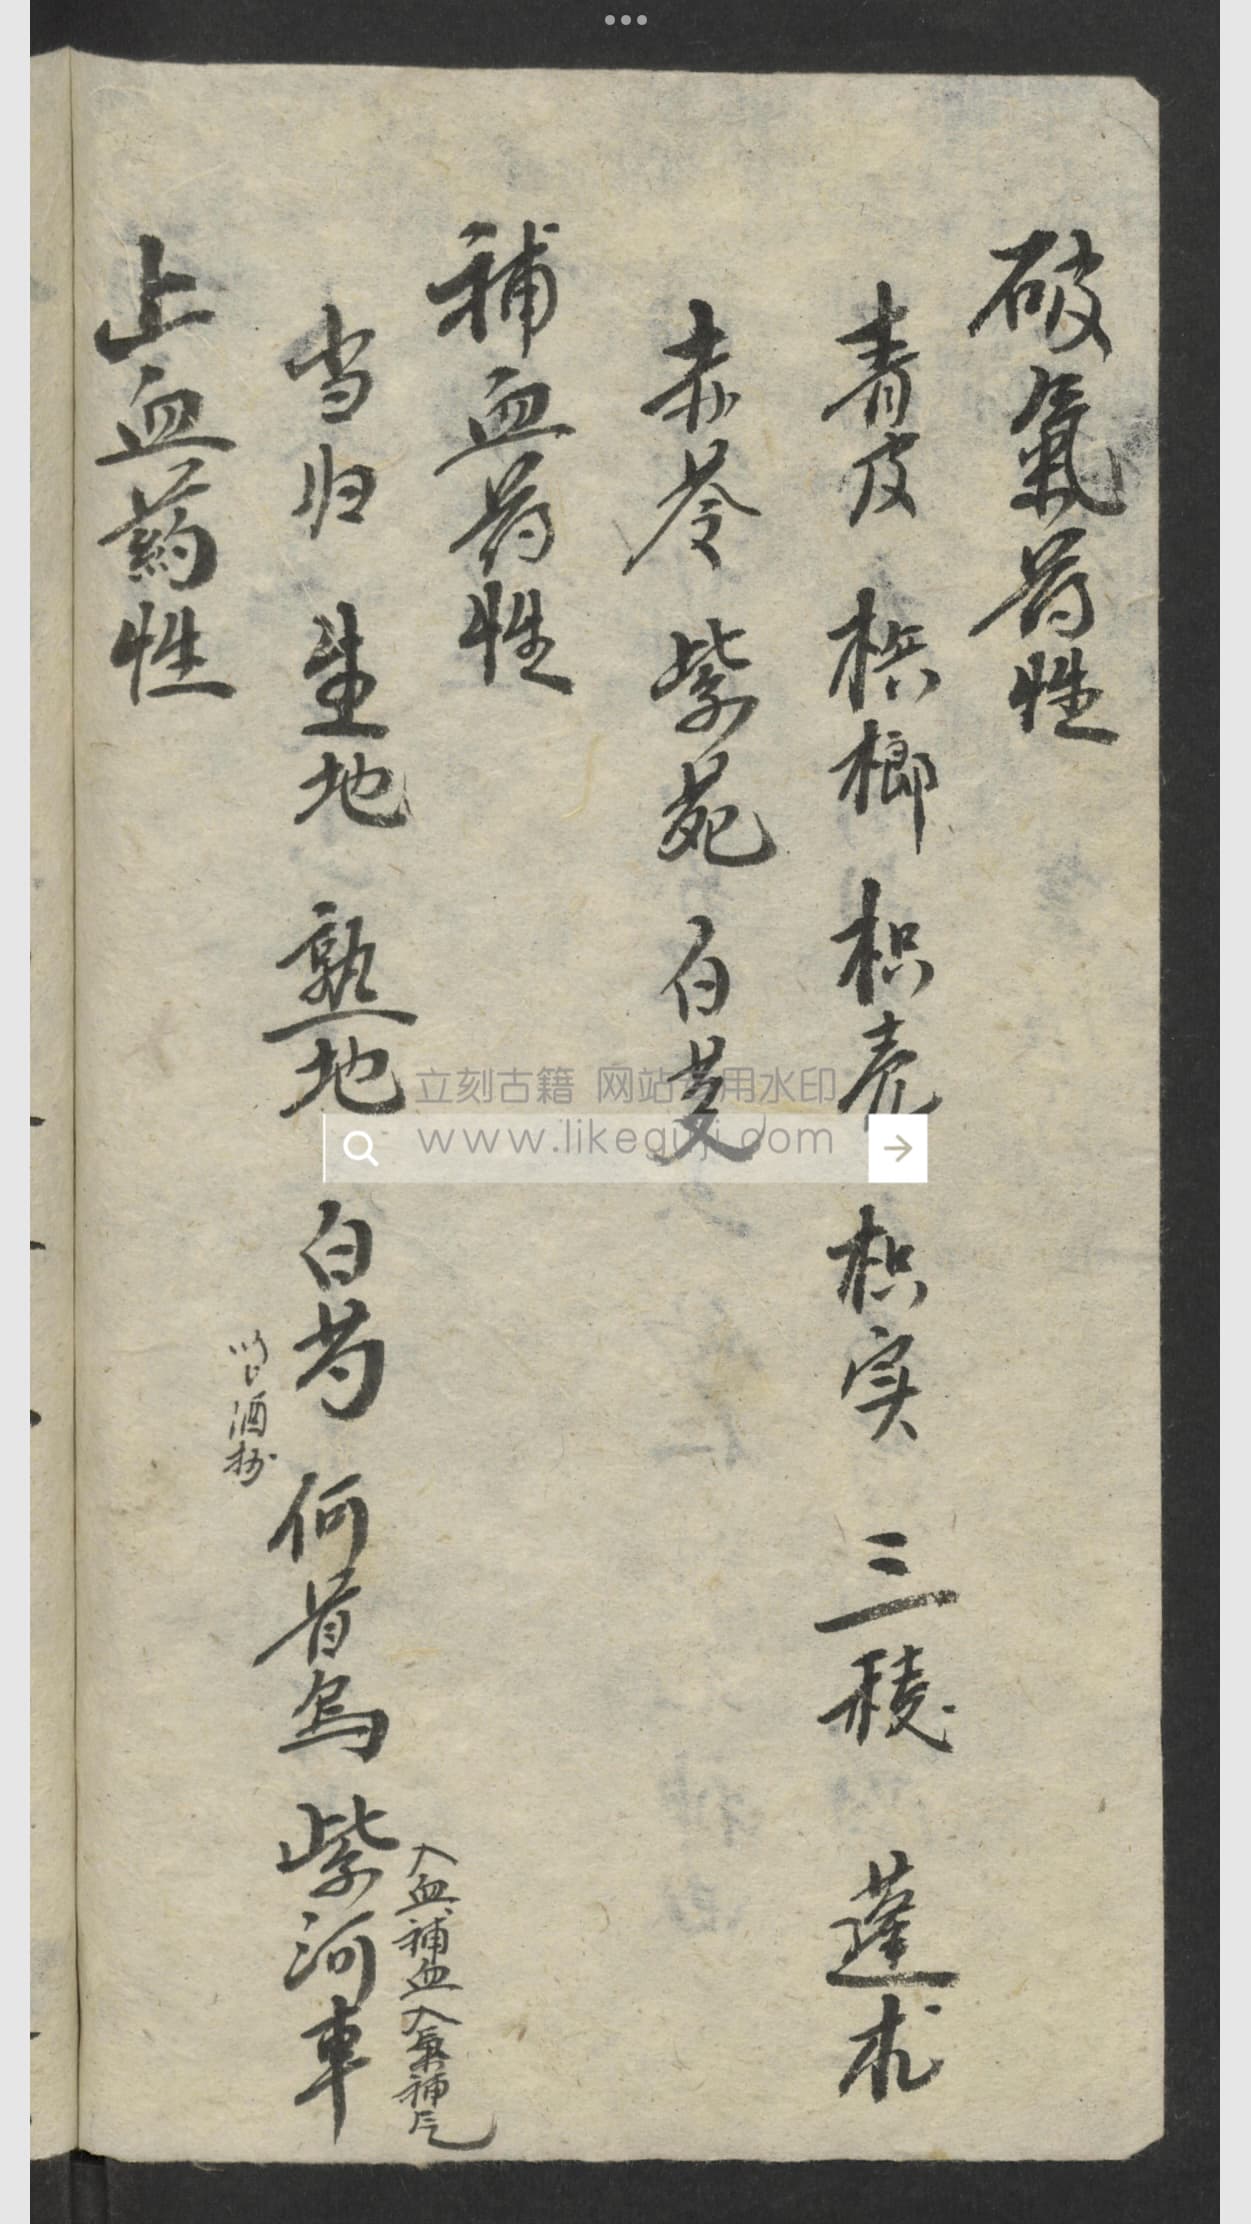 破氣药性
青皮 梹榔 枳壳 枳实 三稜 蓬朮
赤苓 紫苑 白芨
補血药性
入血補血入氣補气
当归 生地 熟地 白芍 何首烏 紫河車
酒炒
止血药性
立刻古籍 网站专用水印
www.likeguji.com